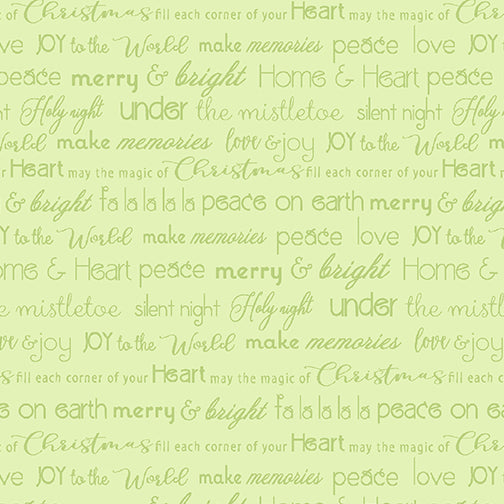 of Christmas fill each corner of your Heart may the magic of Christmas
love JOY to the World make memories peace love JOY to the
peace merry & bright Home & Heart peace
Holy night under the mistletoe silent night Holy
World make memories love & joy JOY to the World
Heart may the magic of Christmas fill each corner of your Heart
& bright fa la la la la peace on earth merry & bright
to the World make memories peace love JOY to the World
Home & Heart peace merry & bright Home &
mistletoe silent night Holy night under the
& joy JOY to the World make memories love & joy
fill each corner of your Heart may the magic of Christmas fill each
on earth merry & bright fa la la la la peace on
of Christmas fill each corner of your Heart may the magic of Christmas
love JOY to the World make memories peace love JOY to the